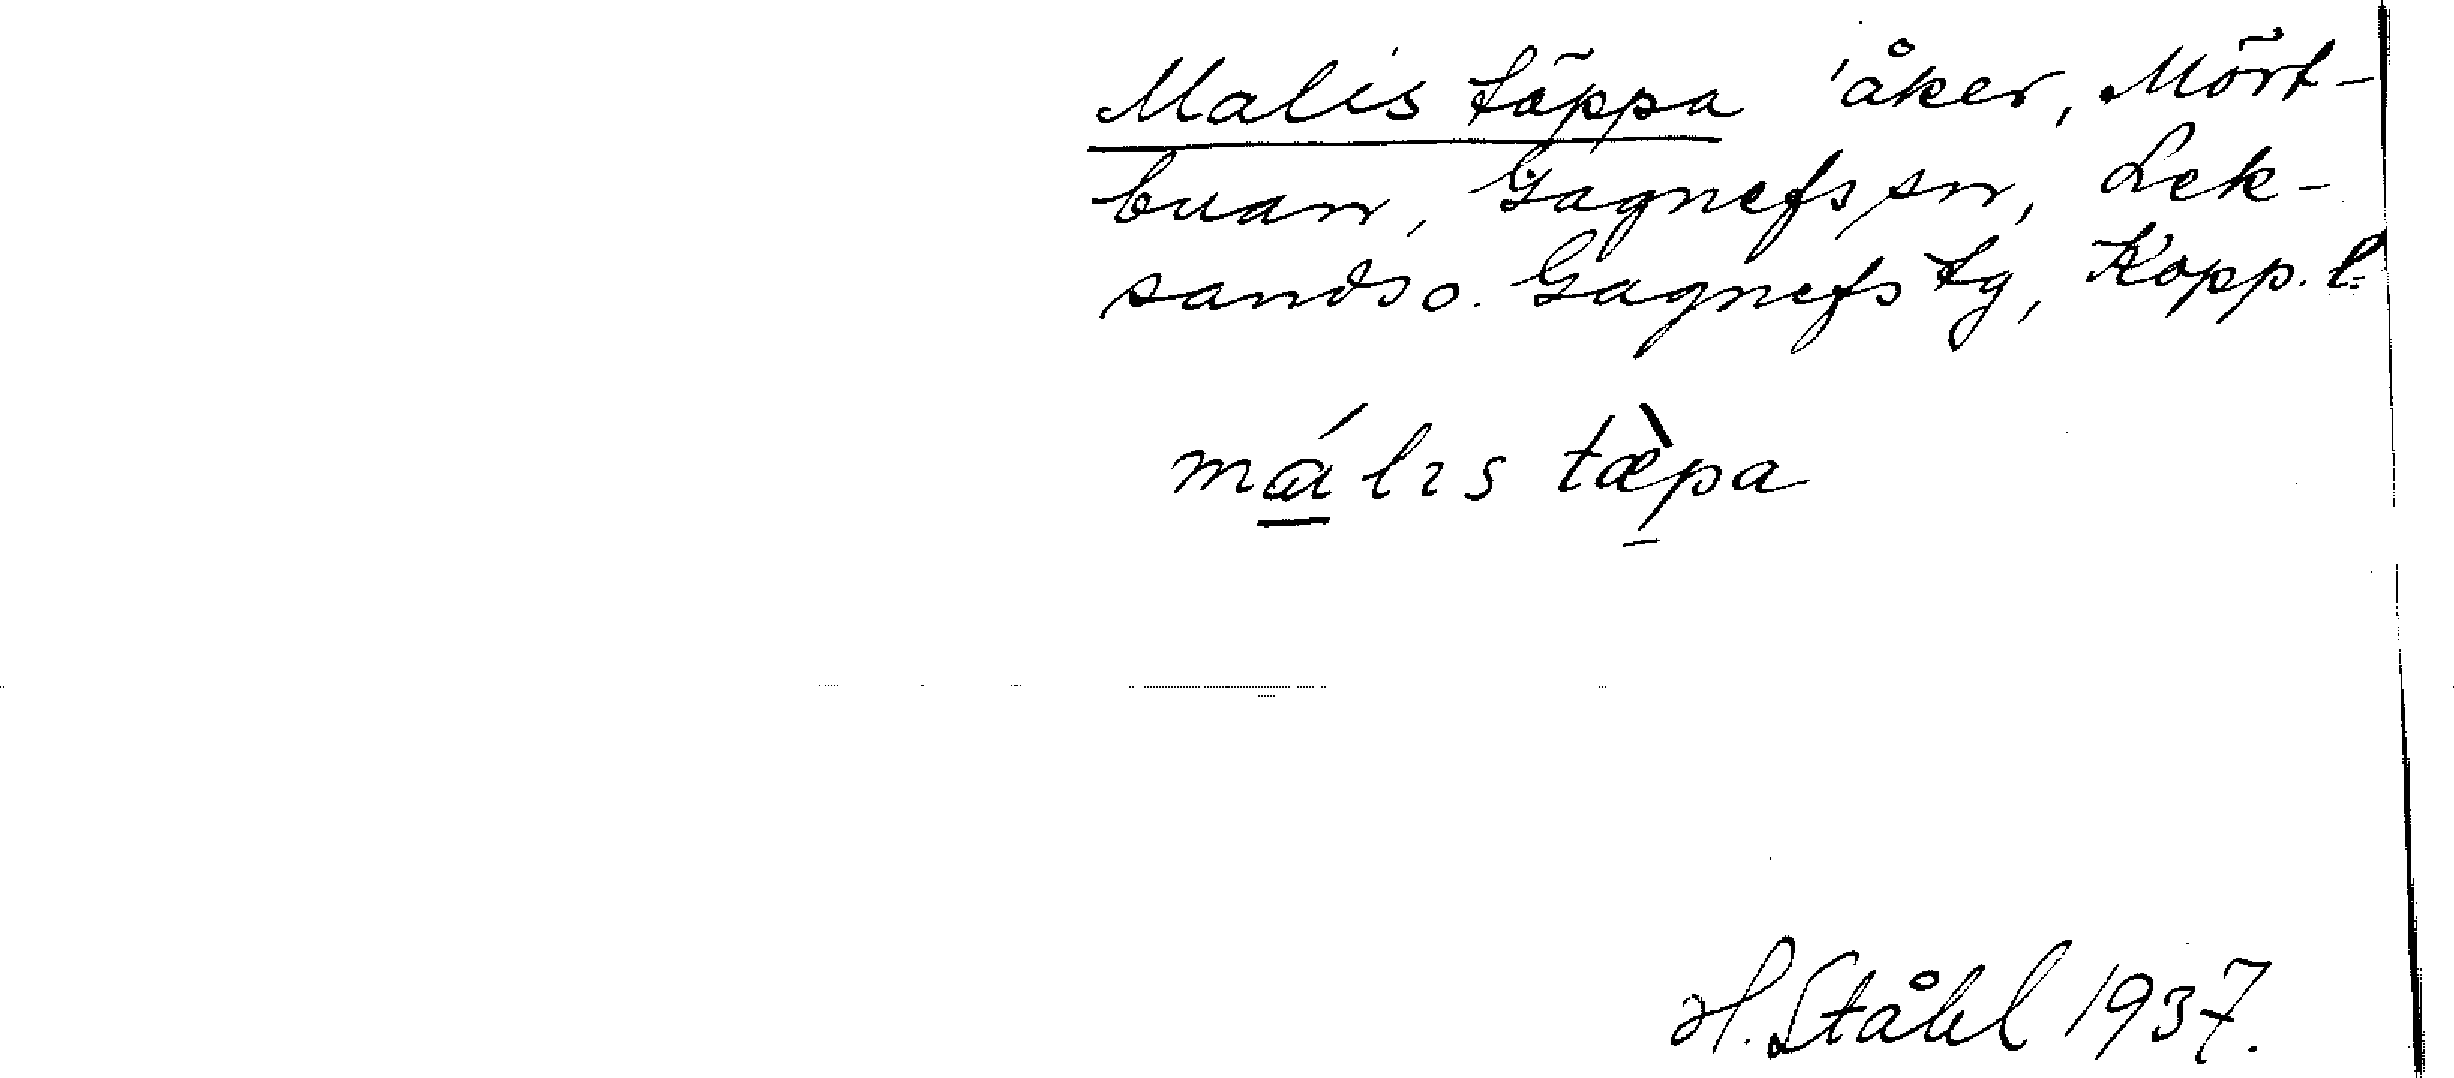 Malis täppa 'åker, Mört-
buan, Gagnefs sn, Lek-
sands o. Gagnefs tg, Kopp. l.
má̱lıs tæ̀p̱a
H. Ståhl 1937.